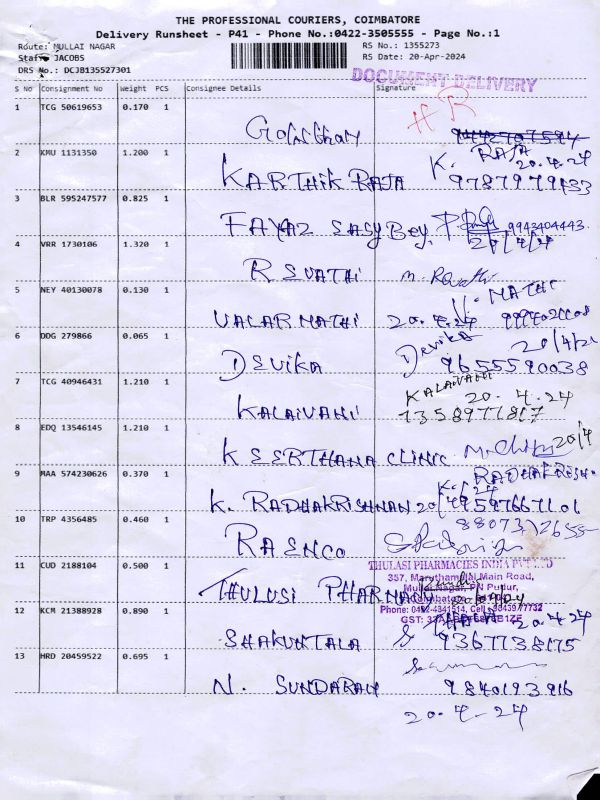 THE PROFESSIONAL COURIERS, COIMBATORE
Delivery Runsheet - P41 - Phone No.:0422-3505555 - Page No.:1
Route: MULLAI NAGAR RS No.: 1355273
Staff: JACOBS RS Date: 20-Apr-2024
DRS No.: DCJB135527301
DOCUMENT DELIVERY
S No Consignment No Weight PCS Consignee Details Signature
1 TCG 50619653 0.170 1
2 KMU 1131350 1.200 1 K. RAJA
20.4.24
KARTHIK RAJA
3 BLR 595247577 0.825 1
FAYAZ 9943404443
20/4/24
4 VRR 1730106 1.320 1
REVATHI M. Revathi
5 NEY 40130078 0.130 1
VALARMATHI 20.4.24
6 DDG 279866 0.065 1
DEVIKA Devika 9655590038
7 TCG 40946431 1.210 1 KALAIVANI
20.4.24
KALAIVANI
8 EDQ 13546145 1.210 1
KEERTHANA CLINIC 20/4
9 MAA 574230626 0.370 1
K. RADHAKRISHNAN
10 TRP 4356485 0.460 1
RAENCO
11 CUD 2188104 0.500 1 THULASI PHARMACIES INDIA PVT LTD
357, Maruthamalai Main Road,
Mullai Nagar, PN Pudur,
Coimbatore
THULUSI PHARMACY
12 KCM 21388928 0.890 1 Phone: 0422-4341514, Cell
GST:
20.4.24
SHAKUNTALA 9367738175
13 HRD 20459522 0.695 1
N. SUNDARAM 9840193916
20.4-24